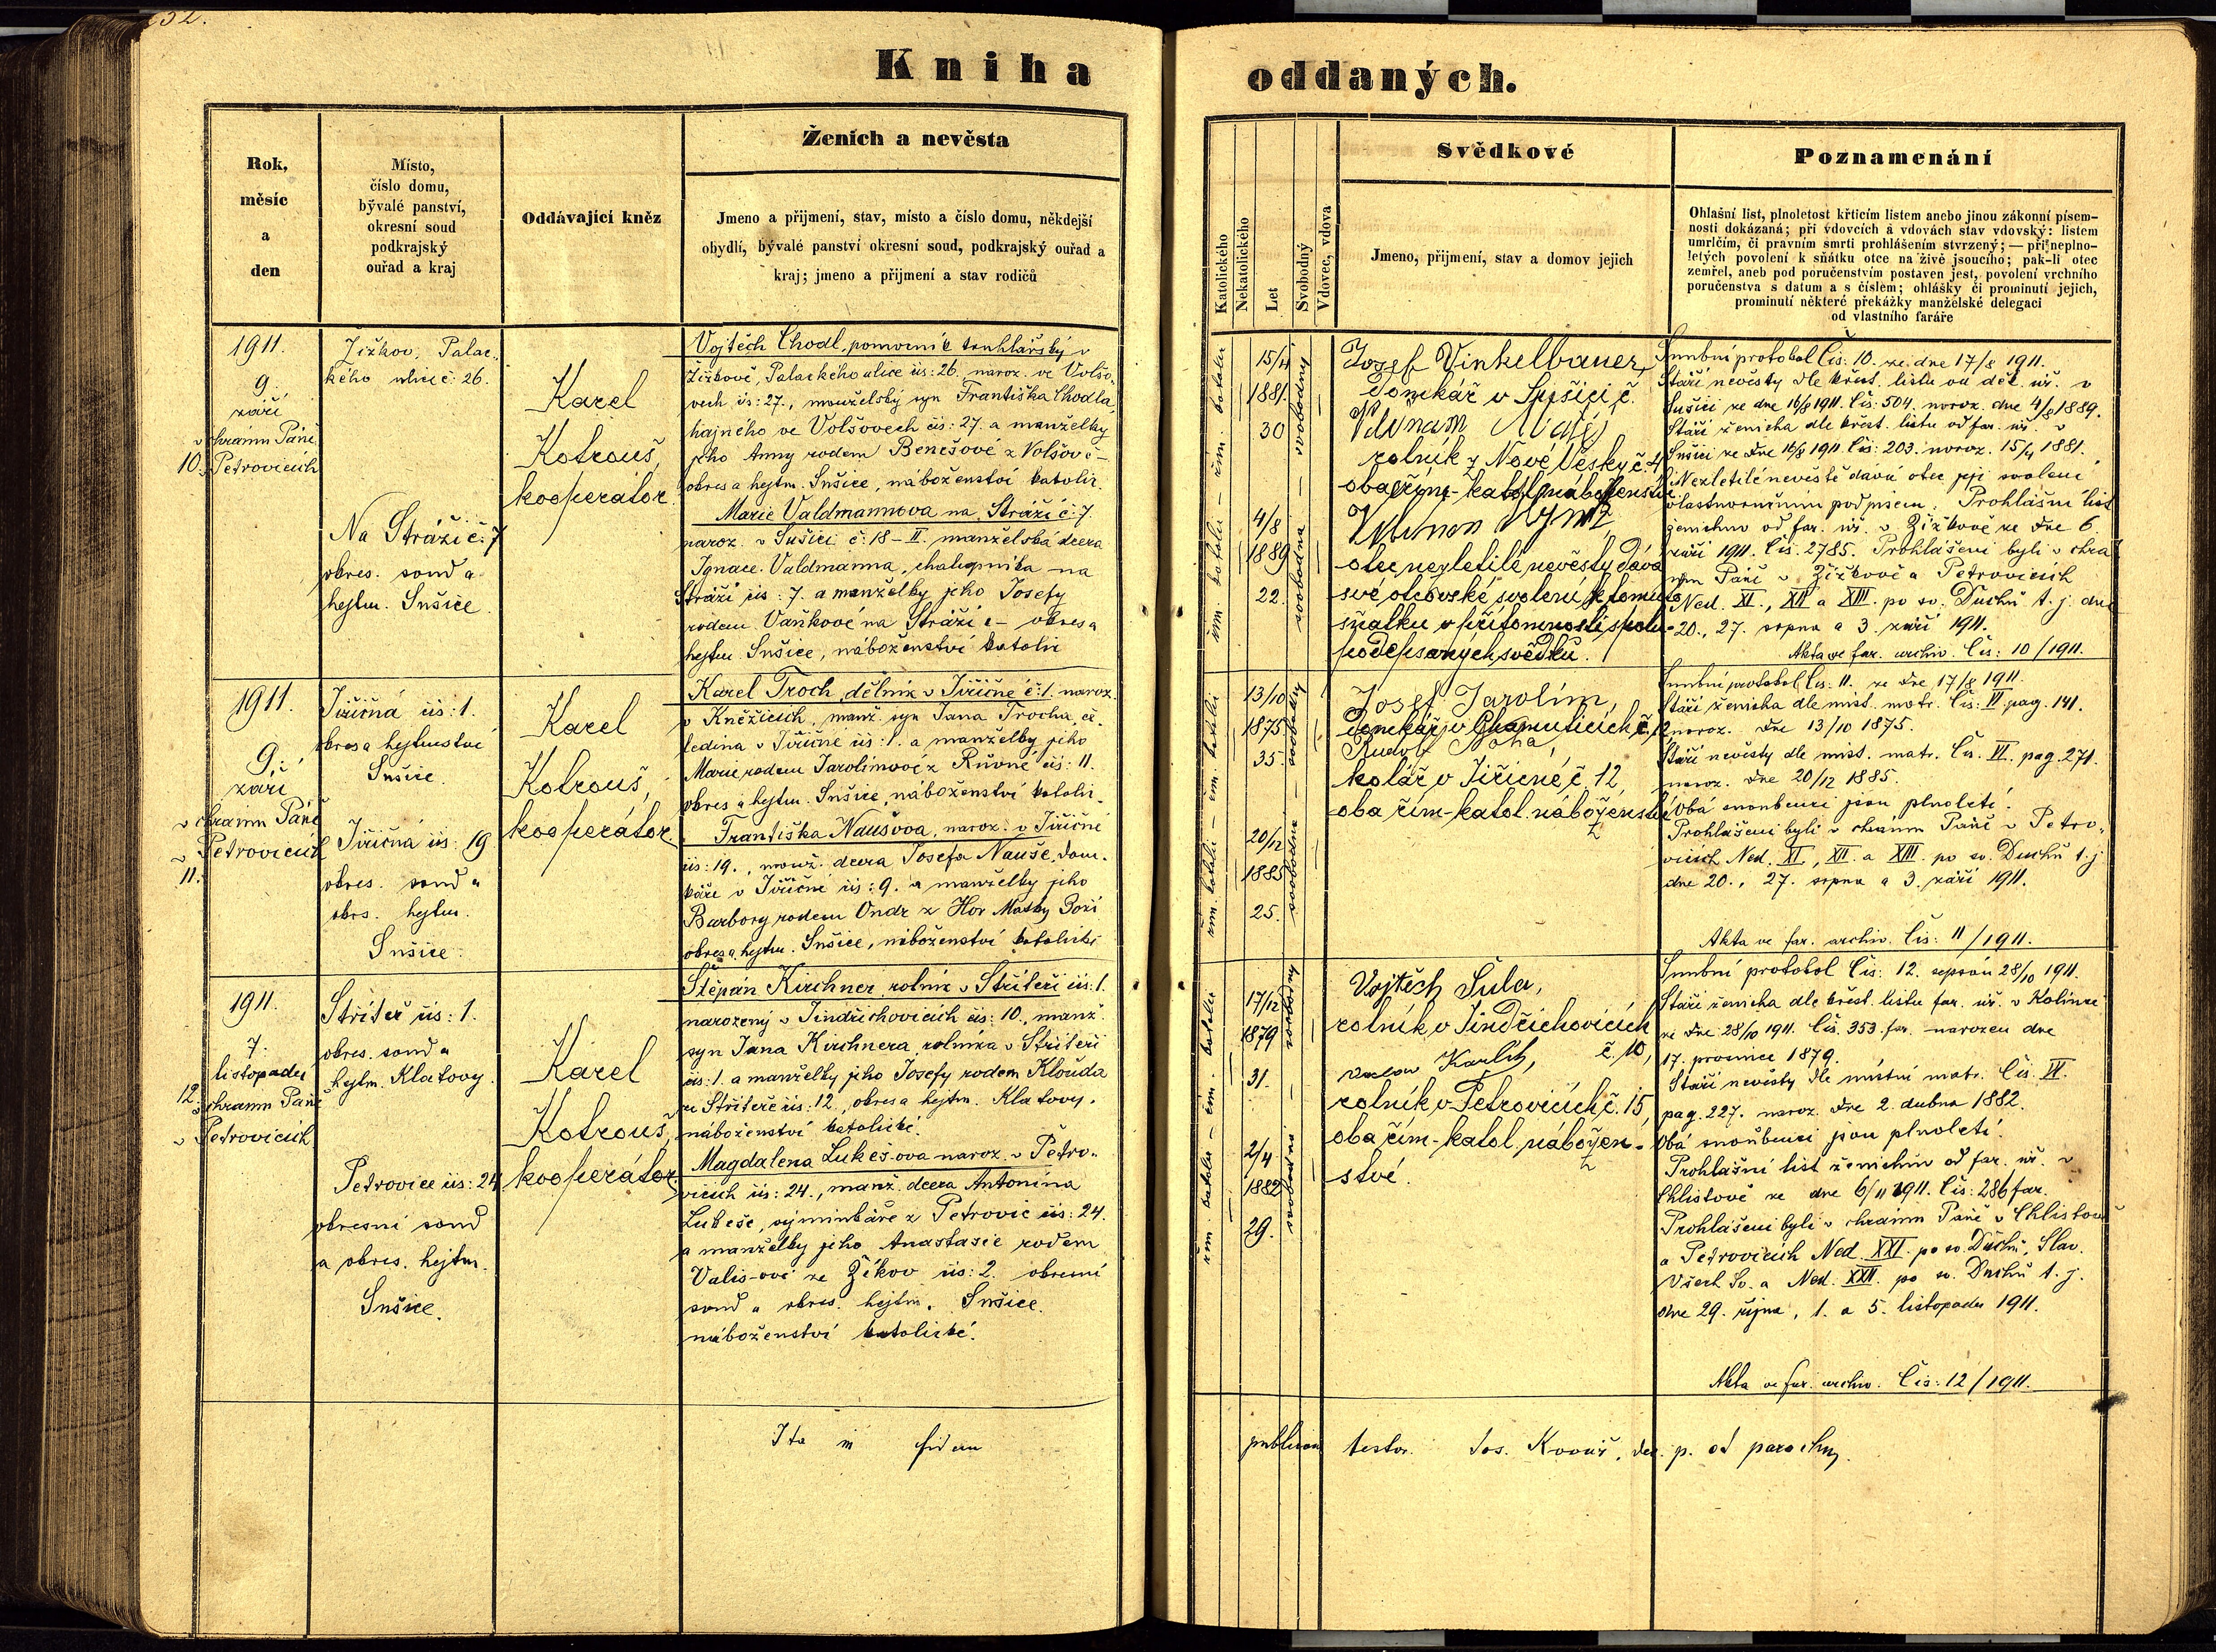 Kniha
oddaných.
Rok,
měsíc
a
den
Místo,
číslo domu,
bývalé panství,
okresní soud
podkrajský
ouřad a kraj
Oddávající kněz
Ženich a nevěsta
Jmeno a přijmení, stav, místo a číslo domu, někdejší
obydlí, bývalé panství okresní soud, podkrajský ouřad a
kraj; jmeno a přijmení a stav rodičů
Katolického
Nekatolického
Let
Svobodný
Vdovec, vdova
Svědkové
Jmeno, přijmení, stav a domov jejich
Poznamenání
Ohlašní list, plnoletost křticím listem anebo jinou zákonní písem-
nosti dokázaná; při vdovcích a vdovách stav vdovský: listem
umrlčím, či pravním smrti prohlášením stvrzený; — při neplno-
letých povolení k sňátku otce na živě jsoucího; pak-li otec
zemřel, aneb pod poručenstvím postaven jest, povolení vrchního
poručenstva s datum a s číslem; ohlášky či prominutí jejich,
prominutí některé překážky manželské delegaci
od vlastního faráře
1911.
9.
září
v chrámu Páně
10. Petrovicích
Žižkov, Palac-
kého ulice č: 26.
Na Stráži č: 7
okres. soud a
hejtm. Sušice.
Karel
Kotrouš,
kooperátor.
Vojtěch Chodl, pomocník truhlářský v
Žižkově, Palackého ulice čís: 26. naroz. ve Volšo-
vech čís: 27., manželský syn Františka Chodla,
hajného ve Volšovech čís: 27. a manželky
jeho Anny rodem Benešové z Volšov č -
okres a hejtm. Sušice, náboženství katolic.
Marie Valdmannova na Stráži č: 7.
naroz. v Sušici č: 18 - II. manželská dcera
Ignace Valdmanna, chalupníka na
Stráži čís: 7. a manželky jeho Josefy
rodem Vaňkové na Stráži č - okres a
hejtm. Sušice, náboženství katolic
řím. katolic - řím. katolic
15/4
1881.
30
4/8
1889
22.
svobodna — svobodný
Josef Vinkelbauer,
Domkář v Sušici č.
rolník z Nové Vésky č. 4
oba řím.-katol. náboženství
otec nezletilé nevěsty dává
své otcovské svolení k tomuto
sňatku v přítomnosti spolu-
podepsaných svědků.
Snubní protokol Čís. 10. ze dne 17/8 1911.
Stáří nevěsty dle křest. listu od děk. úř. v
Sušici ze dne 16/8 1911. Čís: 504. naroz. dne 4/8 1889.
Stáří ženicha dle křest. listu od far. úř. v
Sušici ze dne 16/8 1911 Čís: 203. naroz. 15/4 1881.
Nezletilé nevěstě dává otec její svolení
vlastnoručním podpisem. Prohlášní list
ženichův od far. úř. v Žižkově ze dne 6.
září 1911. Čís. 2785. Prohlášeni byli v chrá-
mu Páně v Žižkově a Petrovicích
Ned. XI., XII a XIII. po sv. Duchu t. j. dne
20., 27. srpna a 3. září 1911.
Akta ve far. archiv. Čís: 10/1911.
1911.
9.
září
v chrámu Páně
v Petrovicích
11.
Jiřičná čís: 1.
okres a hejtmanství
Sušice.
Jiřičná čís: 19
okres. soud a
okrs. hejtm.
Sušice.
Karel
Kotrouš,
kooperátor.
Karel Troch, dělník v Jiřičné č: 1. naroz.
v Kněžicích, manž. syn Jana Trocha, če-
ledína v Jiřičné čís: 1. a manželky jeho
Marie rodem Jarolímové z Rovné čís: 11.
okres a hejtm. Sušice, náboženství katolic.
Františka Naušova, naroz. v Jiřičné
čís: 19., manž. dcera Josefa Nauše, dom-
káře v Jiřičné čís: 9. a manželky jeho
Barbory rodem Ondr z Hor Matky Boží
okres a hejtm. Sušice, náboženství katolické
řím. katolic - řím. katolic
13/10
1875
35.
20/12
1885
25.
svobodna — svobodný
Josef Jarolím,
Domkář v Chamuticích č. 2
Rudolf Noha,
kolář v Jiřičné č 12,
oba řím-katol. náboženství
Snubní protokol Čís. 11. ze dne 17/8 1911.
Stáří ženicha dle míst. matr. Čís: III pag. 141.
naroz. dne 13/10 1875.
Stáří nevěsty dle míst. matr. Čís. VI. pag. 271.
naroz. dne 20/12 1885.
Obá snoubenci jsou plnoletí.
Prohlášeni byli v chrámu Páně v Petro-
vicích Ned. XI., XII. a XIII. po sv. Duchu t. j.
dne 20., 27. srpna a 3. září 1911.
Akta ve far. archiv. Čís: 11/1911.
1911.
7.
listopadu
12. v chrámu Páně
v Petrovicích
Střiteř čís: 1.
okres. soud a
hejtm. Klatovy.
Petrovice čís: 24
okresní soud
a okres. hejtm.
Sušice.
Karel
Kotrouš,
kooperátor.
Štěpán Kirchner, rolník v Střiteři čís: 1.
narozený v Jindřichovicích čís: 10., manž.
syn Jana Kirchnera, rolníka v Střiteři
čís: 1. a manželky jeho Josefy rodem Klouda
ze Střiteře čís: 12., okres a hejtm. Klatovy.
náboženství katolické.
Magdalena Lukeš-ova naroz. v Petro-
vicích čís: 24., manž. dcera Antonína
Lukeše, výminkáře z Petrovic čís: 24.
a manželky jeho Anastasie rodem
Valis-ové ze Žikov čís: 2. okresní
soud a okres. hejtm. Sušice.
náboženství katolické.
řím. katolic - řím. katolic
17/12
1879
31.
2/4
1882
29.
svobodna — svobodný
Vojtěch Šula,
rolník v Jindřichovicích
č. 10,
rolník v Petrovicích č. 15,
oba řím-katol. nábožen-
ství.
Snubní protokol Čís: 12. sepsán 28/10 1911.
Stáří ženicha dle křest. listu far. úř. v Kolinci
ze dne 28/10 1911. Čís. 353. far. narozen dne
17. prosince 1879.
Stáří nevěsty dle místní matr. Čís. VI.
pag. 227. naroz. dne 2. dubna 1882.
Obá snoubenci jsou plnoletí.
Prohlašní list ženichův od far. úř. v
Chlistově ze dne 6/11 1911. Čís: 286 far.
Prohlášeni byli v chrámu Páně v Chlistově
a Petrovicích Ned. XXI. po sv. Duchu, Slav.
Všech Sv. a Ned. XXII. po sv. Duchu t. j.
dne 29. října, 1. a 5. listopadu 1911.
Akta ve far. archiv. Čís: 12/1911.
Ita in fidem
publicam testor. Jos. Kovář,